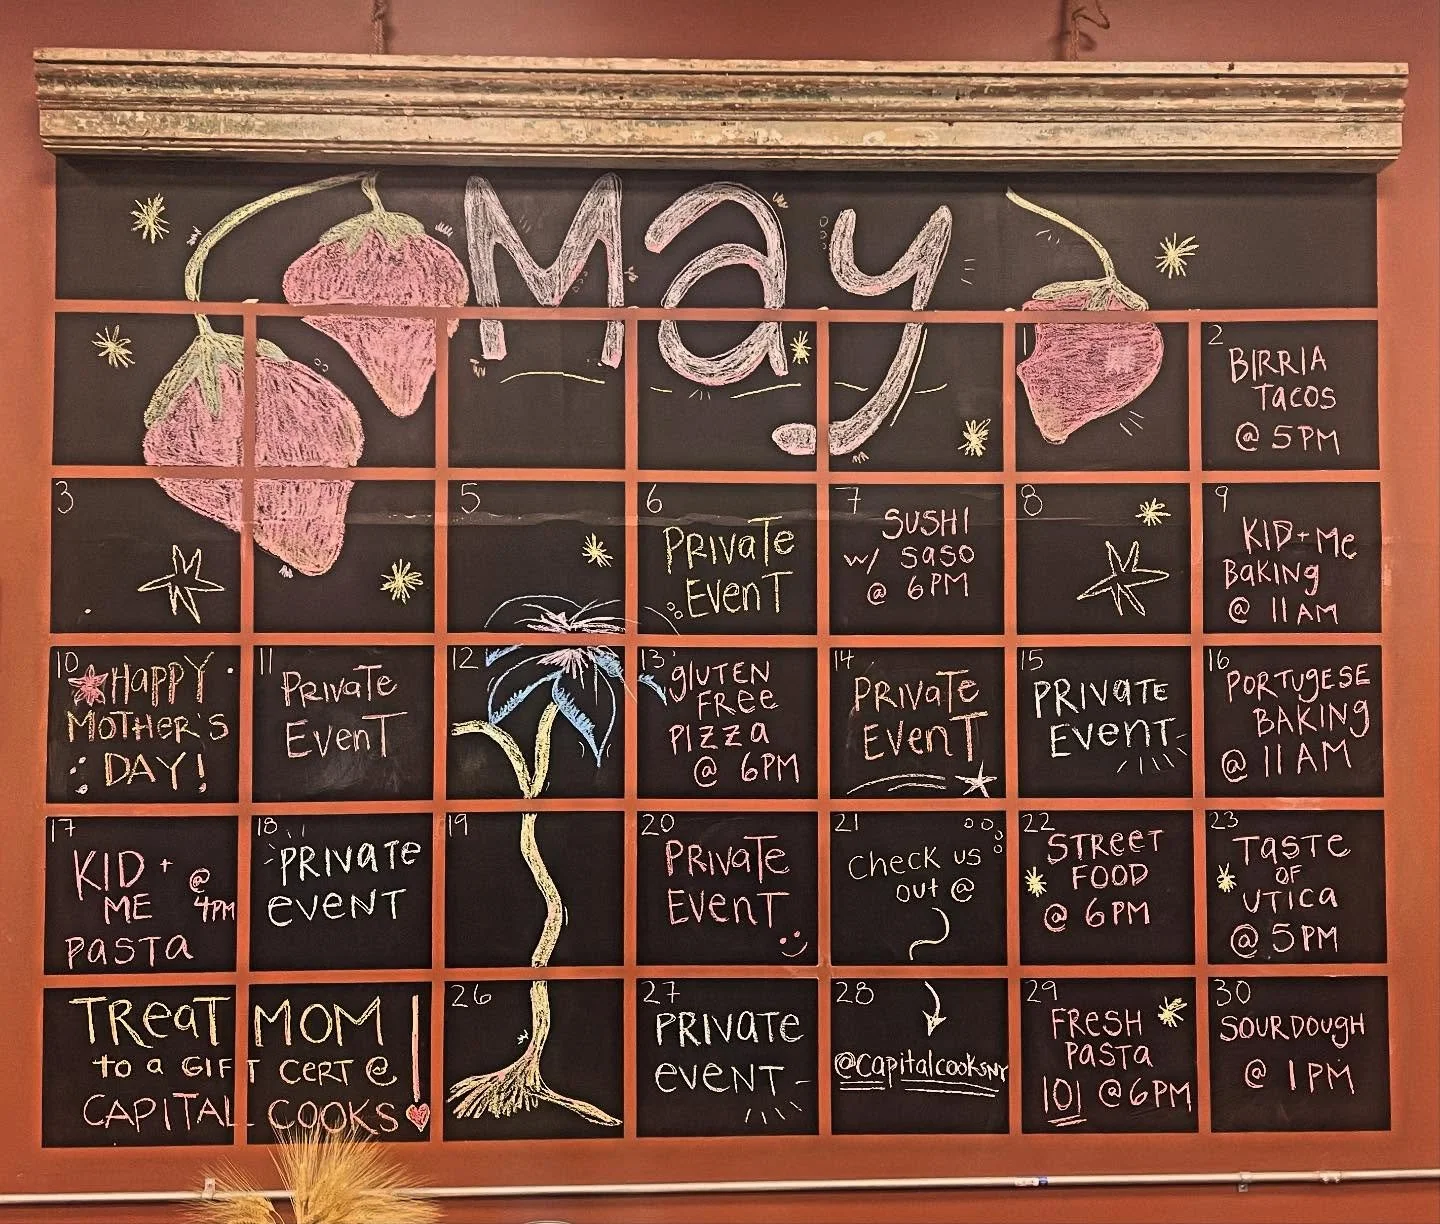 May
1
2
BIRRIA
TACOS
@ 5PM
3
5
6
PRIVATE
EVENT
7
SUSHI
w/ SASO
@ 6PM
8
9
KID + ME
BAKING
@ 11 AM
10
HAPPY
MOTHER'S
DAY!
11
PRIVATE
EVENT
12
13
GLUTEN
FREE
PIZZA
@ 6PM
14
PRIVATE
EVENT
15
PRIVATE
EVENT
16
PORTUGESE
BAKING
@ 11 AM
17
KID + @
ME 4PM
PASTA
18
PRIVATE
EVENT
19
20
PRIVATE
EVENT
21
CHECK US
OUT @
22
STREET
FOOD
@ 6PM
23
TASTE
OF
UTICA
@ 5PM
TREAT MOM!
TO A GIFT CERT @
CAPITAL COOKS
26
27
PRIVATE
EVENT
28
@capitalcooksNY
29
FRESH
PASTA
101 @ 6PM
30
SOURDOUGH
@ 1PM